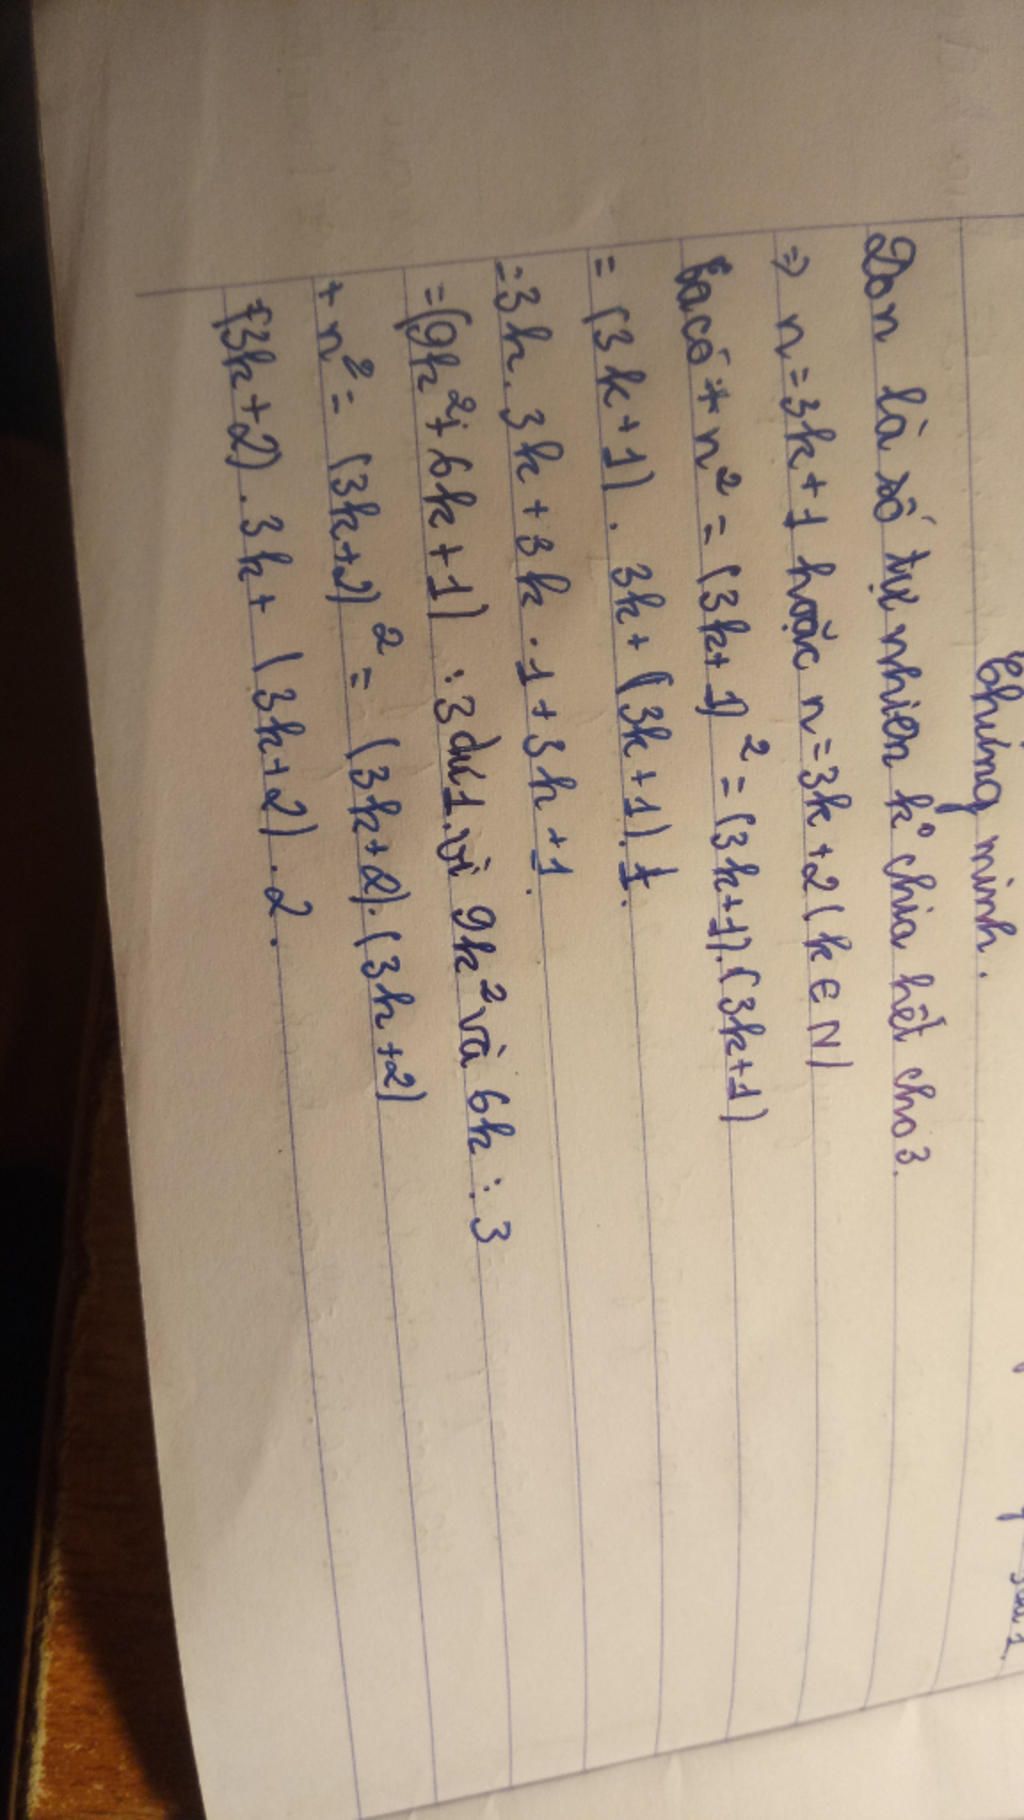 Chứng minh.
Do n là số tự nhiên k° chia hết cho 3.
=> n = 3k + 1 hoặc n = 3k + 2 ( k ∈ N)
Ta có * n² = (3k+1)² = (3k+1).(3k+1)
= (3k+1). 3k + (3k+1).1.
= 3k. 3k + 3k. 1 + 3k + 1.
= (9k² + 6k + 1) : 3 dư 1. vì 9k² và 6k ⋮ 3
+ n² = (3k+2)² = (3k+2).(3k+2)
= (3k+2). 3k + (3k+2). 2.